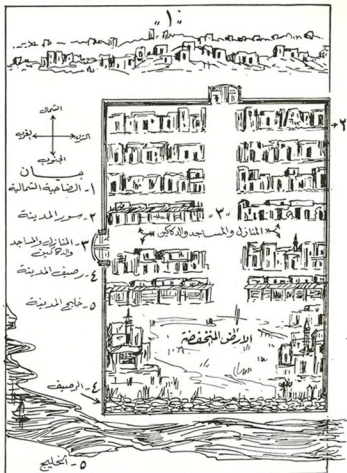 "١"
الشمال
الشرق
الجنوب
بيان
١- الضاحية الشمالية
٢- سور المدينة
٣- المنازل والمساجد
والدكاكين
٤- رصيف المدينة
٥- خليج المدينة
٢
"٣"
«المنازل والمساجد والدكاكين»
الأرض المنخفضة
٤- الرصيف
٥- الخليج